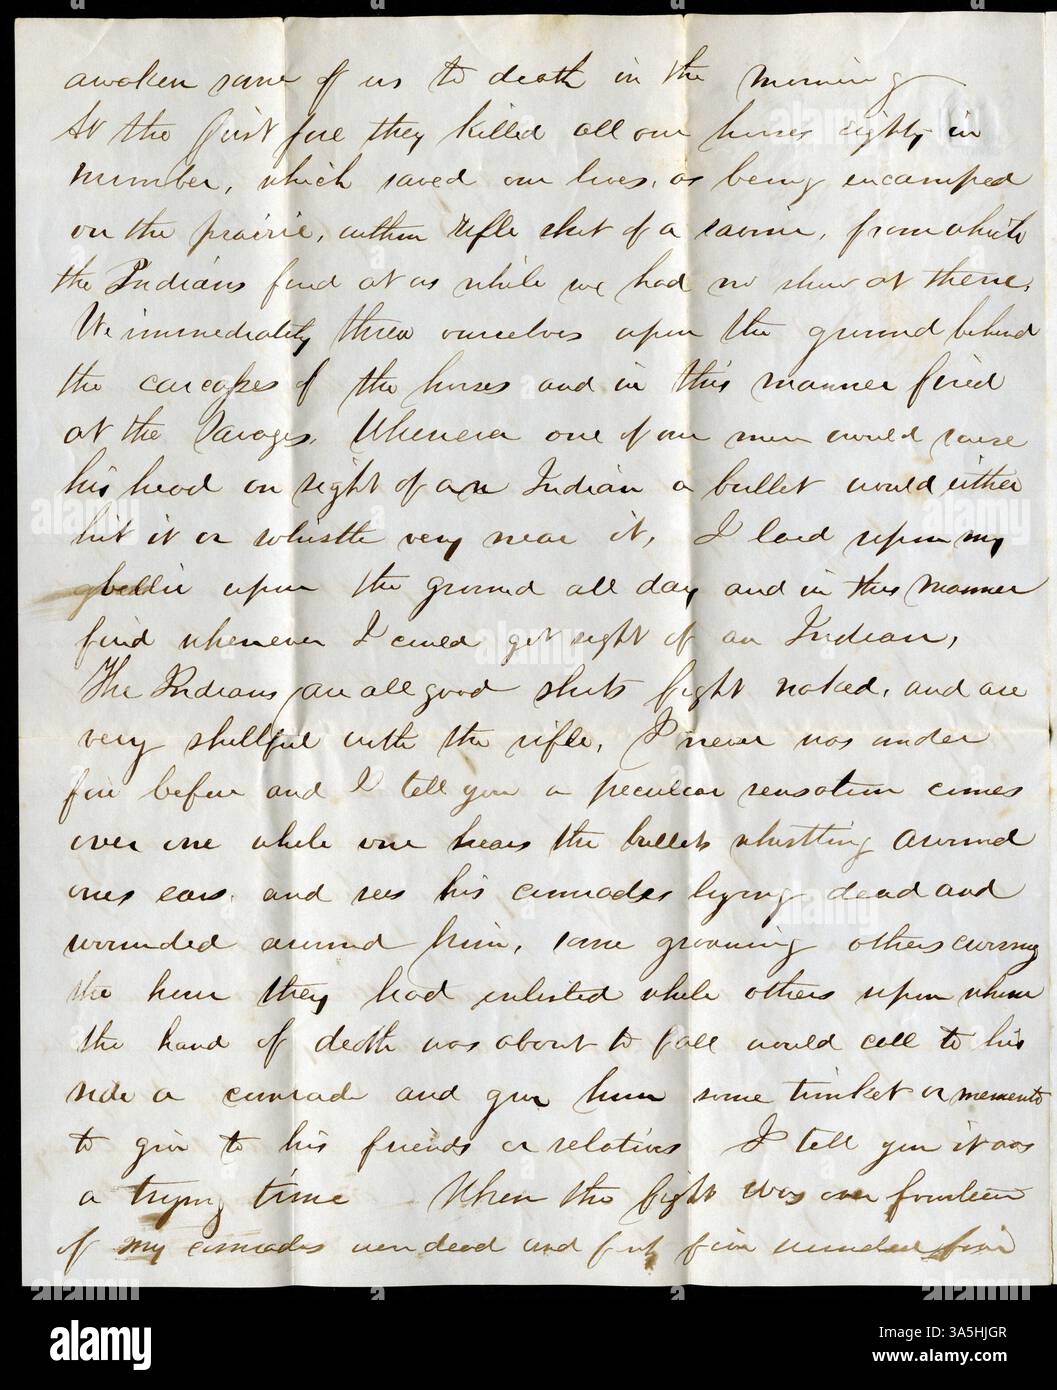 awoken some of us to death in the morning
At the first fire they killed all our horses eighty in
number, which saved our lives, as being encamped
on the prairie, within rifle shot of a ravine, from which
the Indians fired at us while we had no show at them.
We immediately threw ourselves upon the ground behind
the carcasses of the horses and in this manner fired
at the Savages. Whenever one of our men would raise
his head on sight of an Indian a bullet would either
hit it or whistle very near it, I laid upon my
bellie upon the ground all day and in this manner
fired whenever I could get sight of an Indian,
The Indians are all good shots fight naked, and are
very skillful with the rifle, I never was under
fire before and I tell you a peculiar sensation comes
over one while one hears the bullets whistling around
ones ears, and sees his comrades lying dead and
wounded around him, some groaning others cursing
the hour they had enlisted while others upon whom
the hand of death was about to fall would call to his
side a comrade and give him some trinket or memento
to give to his friends or relatives I tell you it was
a trying time When the fight was over fourteen
of my comrades were dead and forty five wounded five
alamy
a
3A5HJGR
www.alamy.com